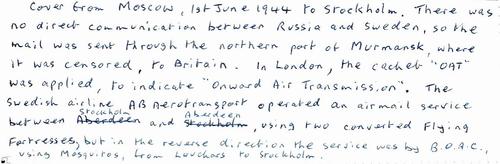 Cover from Moscow, 1st June 1944 to Stockholm. There was
no direct communication between Russia and Sweden, so the
mail was sent through the northern port of Murmansk, where
it was censored, to Britain. In London, the cachet "OAT"
was applied, to indicate "Onward Air Transmission". The
Swedish airline AB Aerotransport operated an airmail service
Stockholm Aberdeen
between Aberdeen and Stockholm, using two converted Flying
Fortresses, but in the reverse direction the service was by B.O.A.C.,
using Mosquitos, from Leuchars to Stockholm.